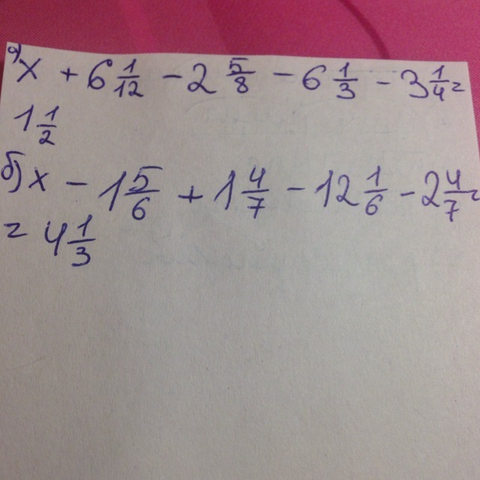 а) x + 6 1/12 - 2 5/8 - 6 1/3 - 3 1/4 =
1 1/2
б) x - 1 5/6 + 1 4/7 - 12 1/6 - 2 4/7 =
= 4 1/3